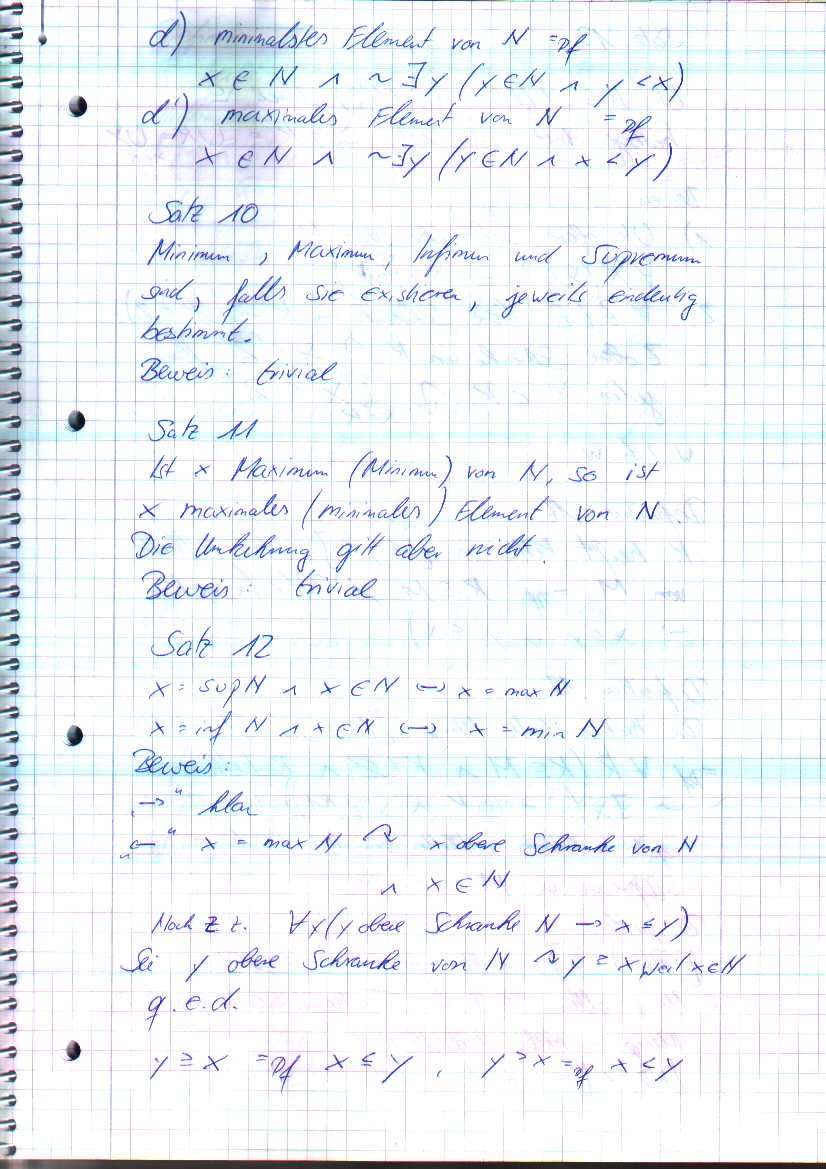 d) minimalstes Element von N =Df
x ∈ N ∧ ~∃y (y∈N ∧ y < x)
d') maximales Element von N =Df
x ∈ N ∧ ~∃y (y∈N ∧ x < y)
Satz 10
Minimum, Maximum, Infimum und Supremum
sind, falls sie existieren, jeweils eindeutig
bestimmt.
Beweis: trivial
Satz 11
Ist x Maximum (Minimum) von N, so ist
x maximales (minimales) Element von N.
Die Umkehrung gilt aber nicht.
Beweis: trivial
Satz 12
x = sup N ∧ x ∈ N ⟷ x = max N
x = inf N ∧ x ∈ N ⟷ x = min N
Beweis:
„→“ klar
„←“ x = max N ↷ x obere Schranke von N
∧ x ∈ N
Noch z z. ∀y(y obere Schranke N → x ≤ y)
Sei y obere Schranke von N ↷ y ≥ x weil x∈N
q.e.d.
y ≥ x =Df x ≤ y, y > x =Df x < y